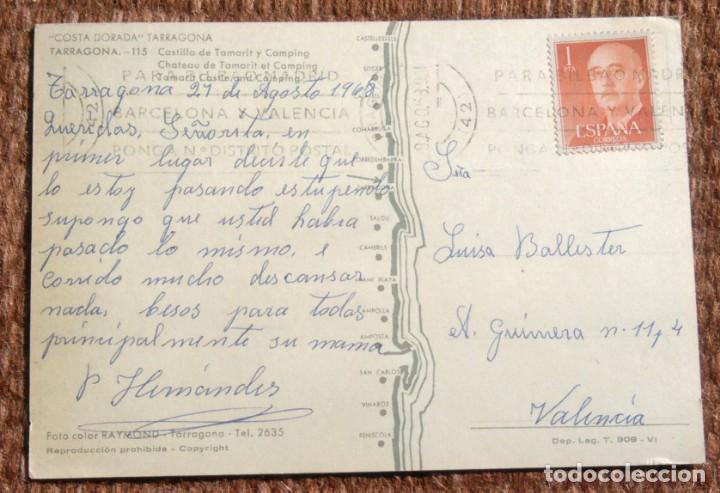 "COSTA DORADA" TARRAGONA
TARRAGONA. - 115 Castillo de Tamarit y Camping
Chateau de Tamarit et Camping
Tamarit Castle and Camping
PARA BILBAO MADRID
BARCELONA Y VALENCIA
PONGA N.º DISTRITO POSTAL
Tarragona 27 de Agosto 1968
Queridas, Señorita, en
primer lugar decirte que
lo estoy pasando estupendo
supongo que usted habia
pasado lo mismo, e
corrido mucho descansar
nada, besos para todas
principalmente su mama
P Hernández
Foto color RAYMOND - Tarragona - Tel. 2635
Reproducción prohibida - Copyright
CASTELLDEFELS
SITGES
COMARRUGA
TORREDEMBARRA
SALOU
CAMBRILS
MIAMI PLAYA
AMPOLLA
AMPOSTA
SAN CARLOS
VINAROZ
PEÑISCOLA
1
PTA
ESPAÑA
CORREOS
PARA BILBAO MADRID
BARCELONA Y VALENCIA
PONGA N.º DISTRITO POS
Srta
Luisa Ballester
A. Guimera n. 11, 4
Valencia
Dep. Leg. T. 909 - VI
todocoleccion.net